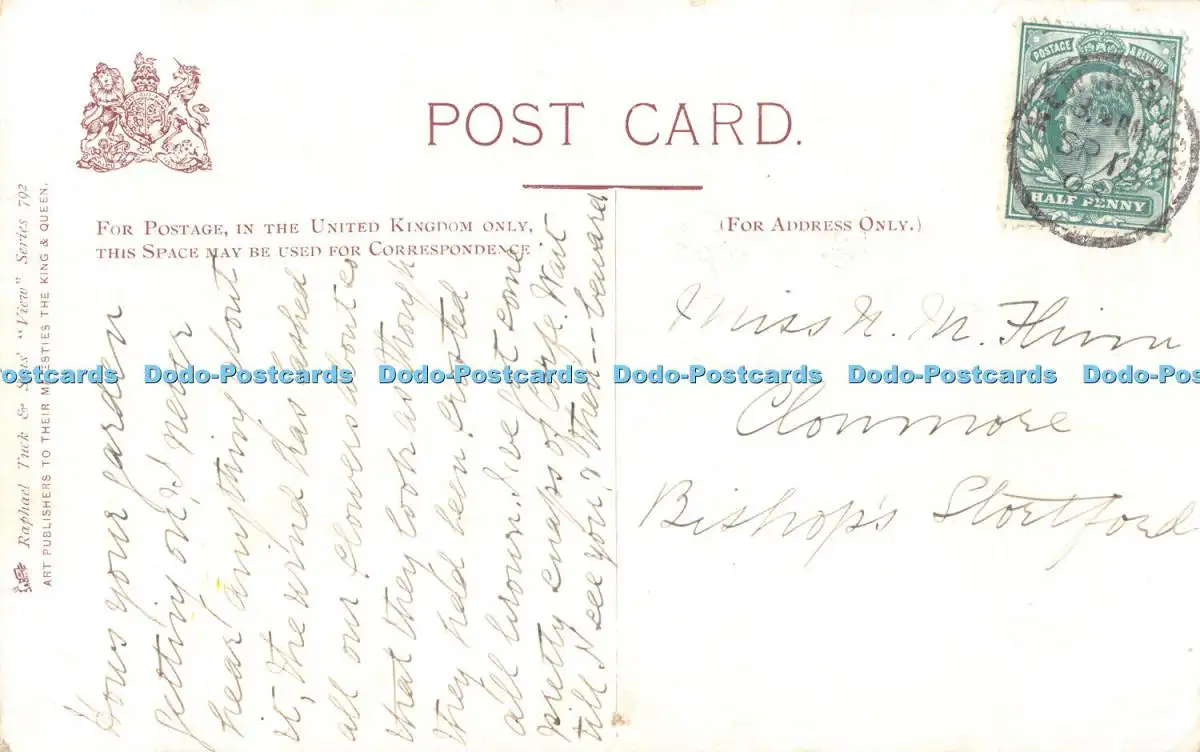 POST CARD.
FOR POSTAGE, IN THE UNITED KINGDOM ONLY,
THIS SPACE MAY BE USED FOR CORRESPONDENCE
(FOR ADDRESS ONLY.)
Raphael Tuck & Sons' "View" Series 792
ART PUBLISHERS TO THEIR MAJESTIES THE KING & QUEEN.
POSTAGE & REVENUE
HALF PENNY
Hows your garden
getting on? I never
hear anything about
it, the wind has lashed
all our flowers about so
that they look as though
they had been frosted
all brown. I've got some
pretty snaps of Corfe. Wait
till I see you, & then -- beward
Miss M. Flinn
Clonmore
Bishop's Stortford
Dodo-Postcards Dodo-Postcards Dodo-Postcards Dodo-Postcards